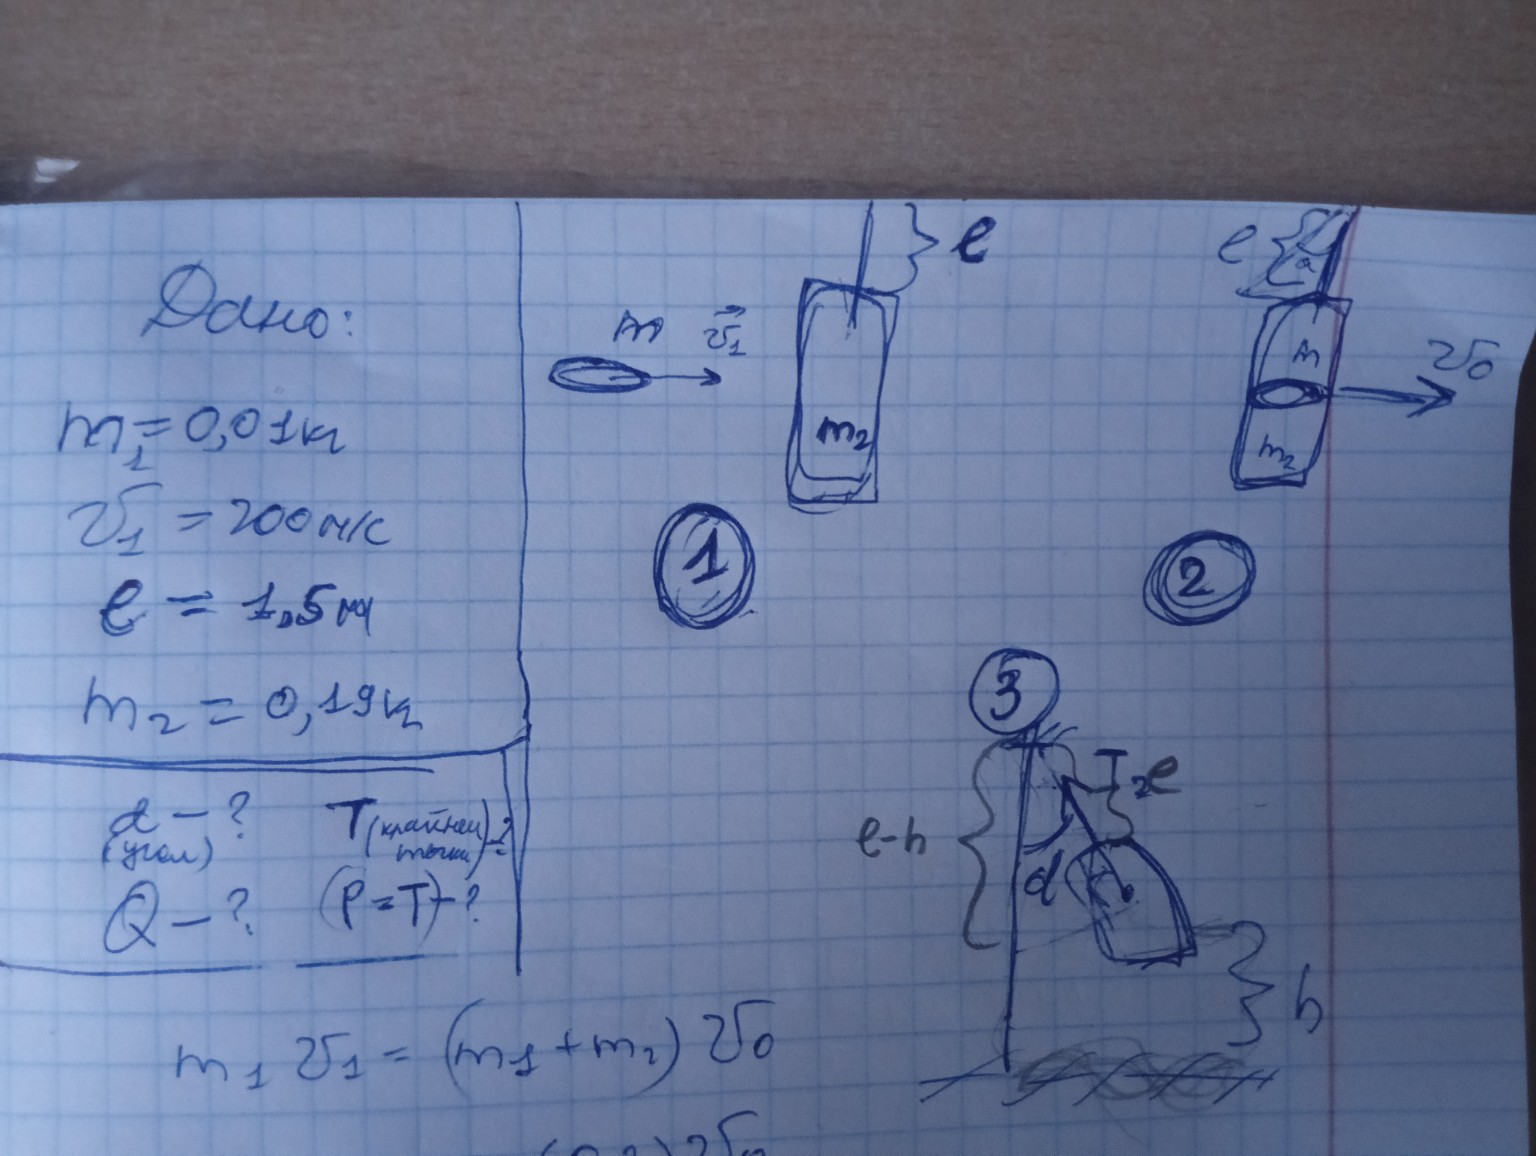 Дано:
m₁ = 0,01 кг
v₁ = 200 м/с
l = 1,5 м
m₂ = 0,19 кг
α - ?
(угол)
T (крайней точки) - ?
Q - ?
(P = T) - ?
m v⃗₁
m₂
l
1
l
α
m
v₀
m₂
2
3
T₂ l
l-h
α
h
m₁ v₁ = (m₁ + m₂) v₀